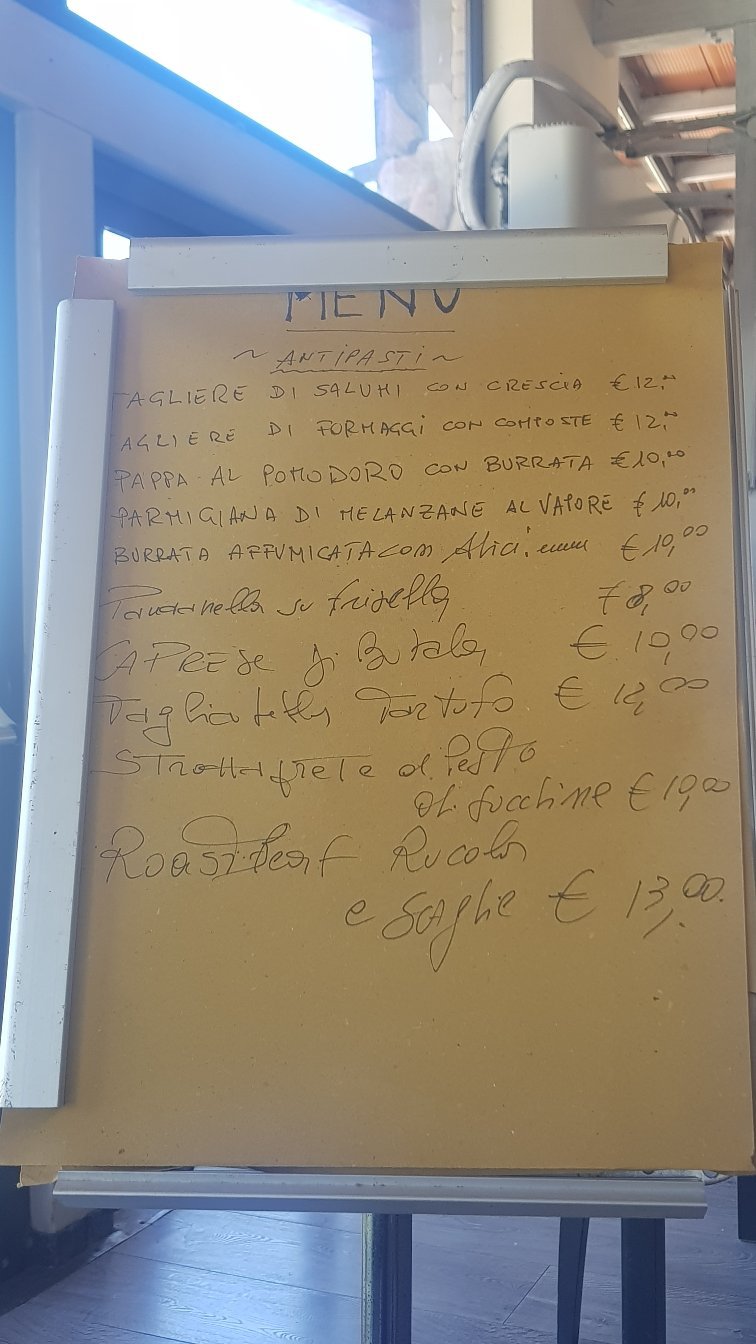 MENU
~ ANTIPASTI ~
TAGLIERE DI SALUMI CON CRESCIA € 12,00
AGLIERE DI FORMAGGI CON COMPOSTE € 12,00
PAPPA AL POMODORO CON BURRATA € 10,00
PARMIGIANA DI MELANZANE AL VAPORE € 10,00
BURRATA AFFUMICATA CON Alici € 10,00
Panzanella su frisella 8,00
CAPRESE di Bufala € 10,00
Tagliatella Tartufo € 12,00
STROZZAPRETE al Pesto
di Zucchine € 10,00
Roastbeaf Rucola
e Scaglie € 13,00.